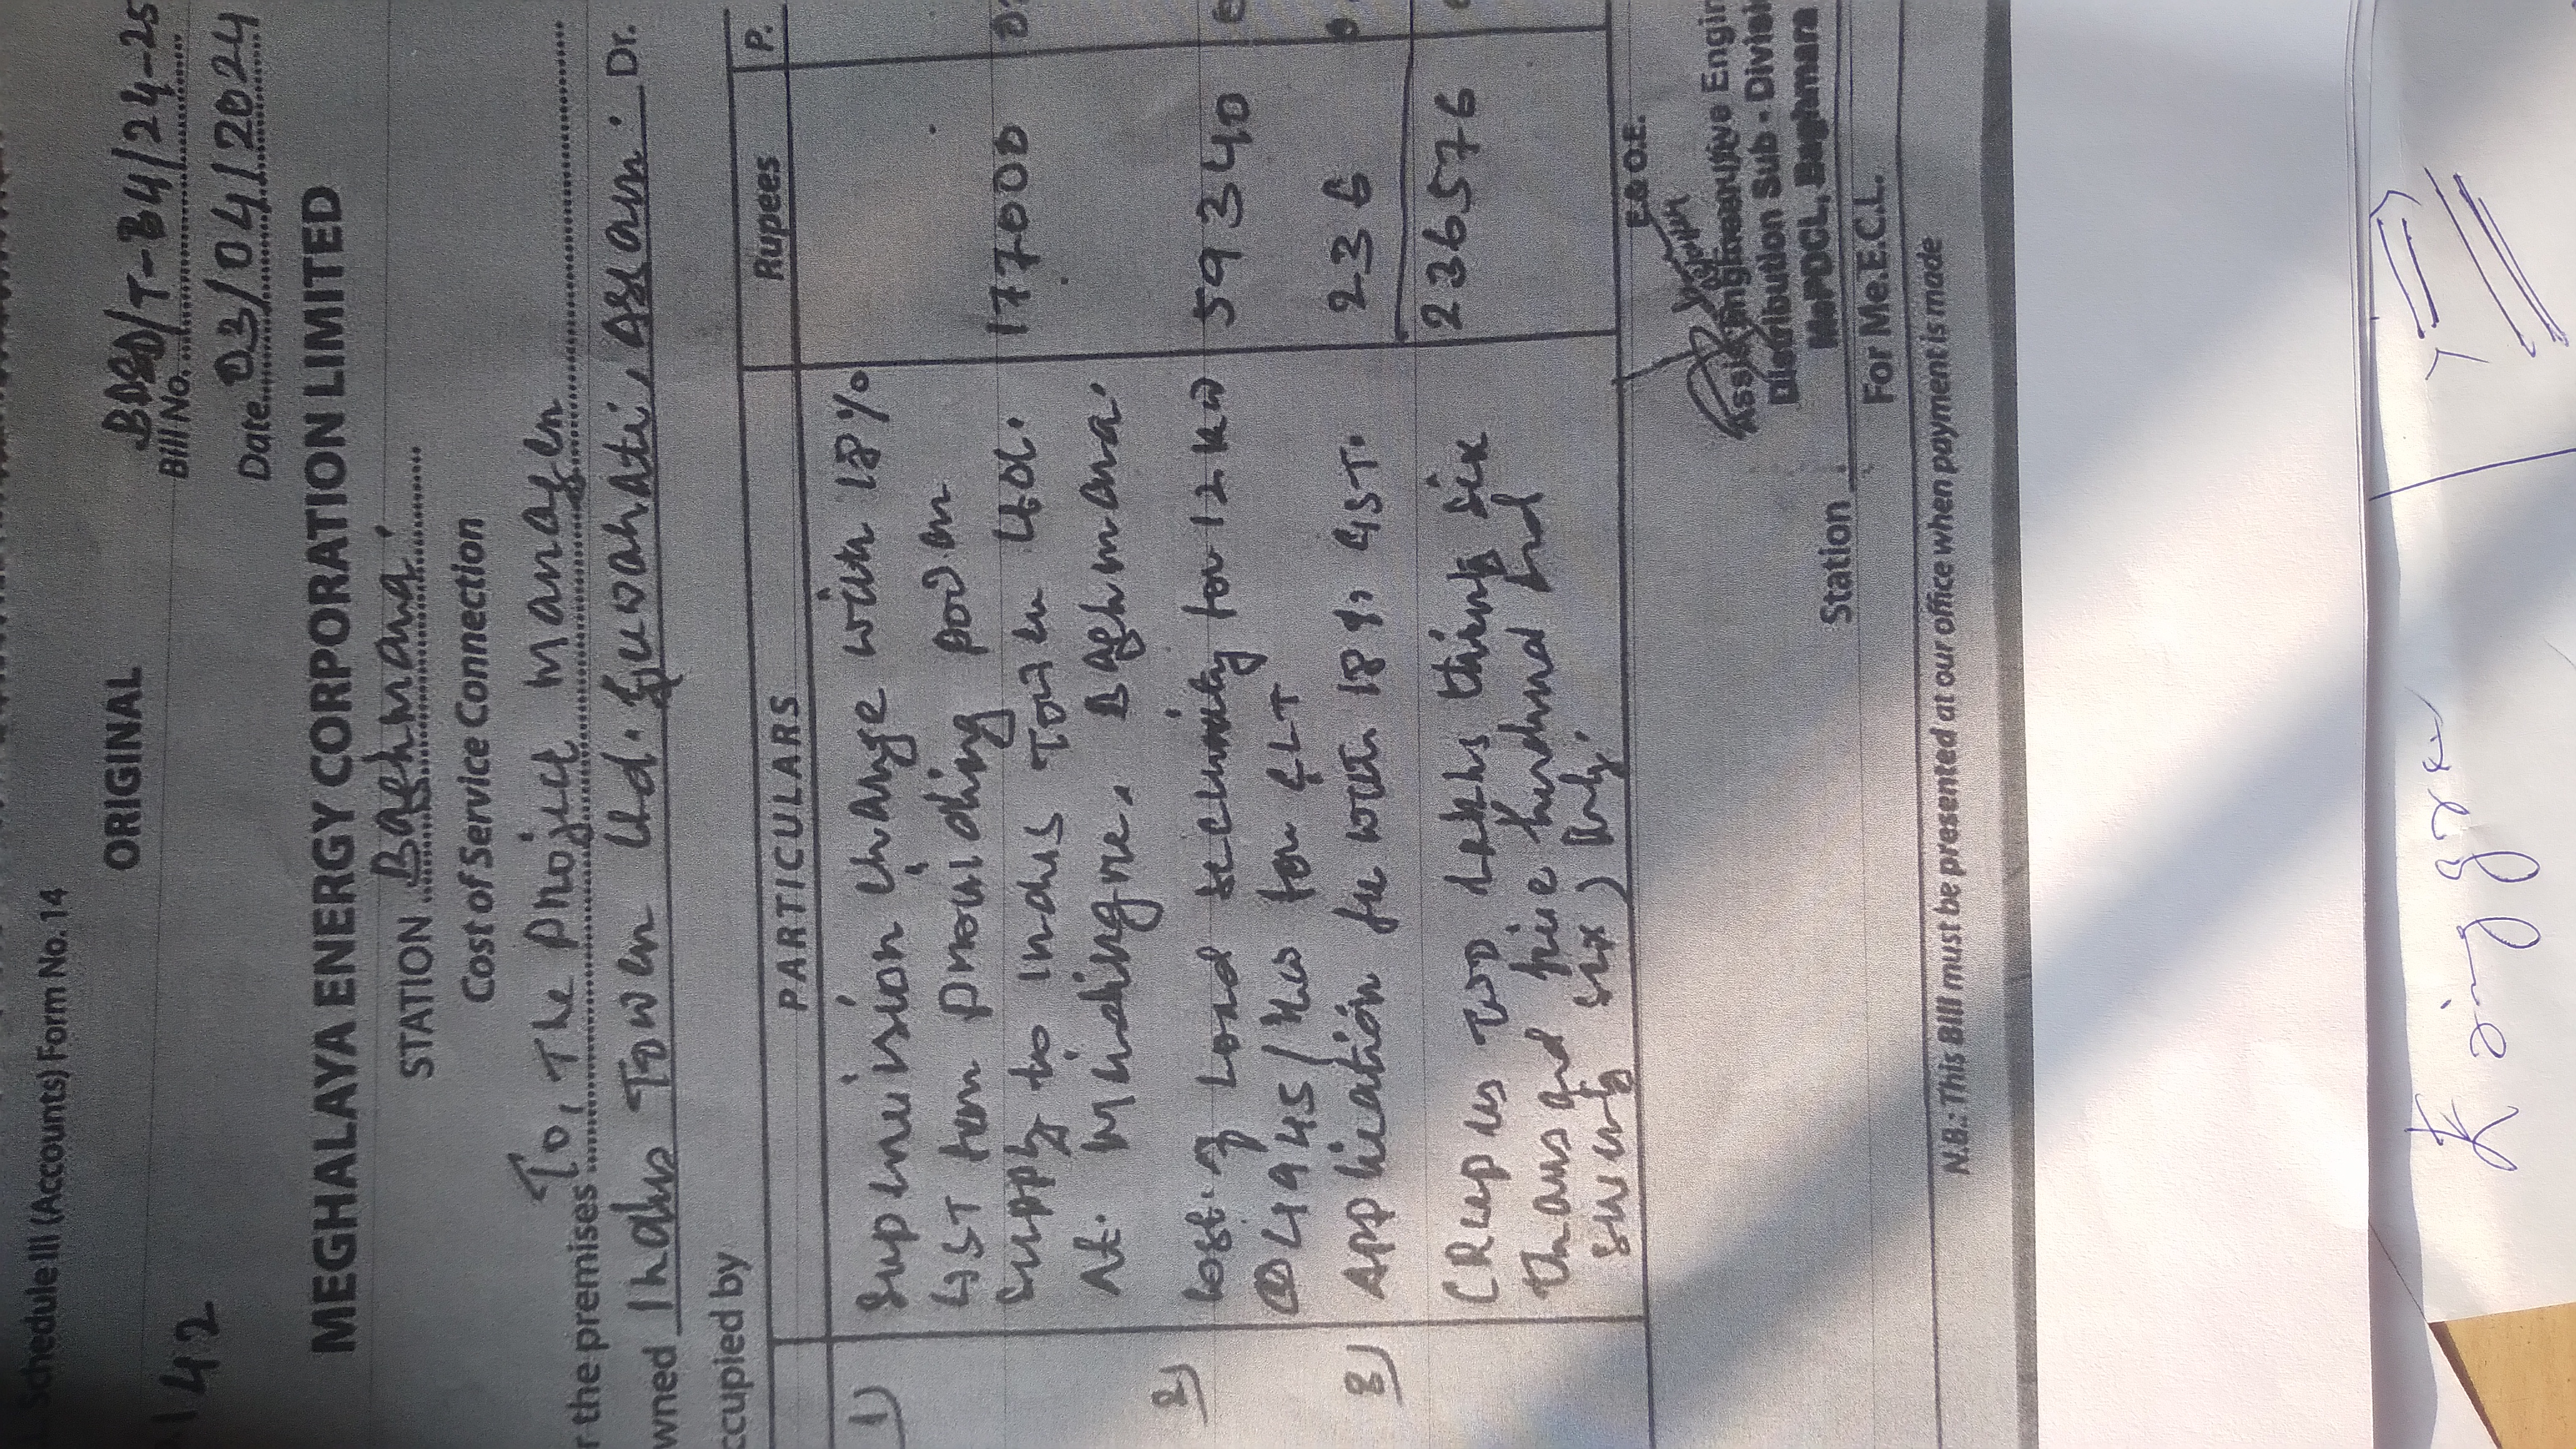 Schedule III (Accounts) Form No. 14
142
ORIGINAL
Bill No. BDSD/T-B4/24-25
Date 03/04/2024
MEGHALAYA ENERGY CORPORATION LIMITED
STATION Baghmara.
Cost of Service Connection
r the premises To, The Project Manager
wned Indus Tower Ltd. Guwahati, Assam. Dr.
ccupied by
PARTICULARS Rupees P.
1) Supervision charge with 18%
GST for providing power
supply to Indus Tower Ltd. 177000
At. Mindingre, Baghmara.
2) Cost of Load security for 12 KW 59340
@ 4945/KW for GLT
3) Application fee with 18% GST. 236
236576
(Rupees two Lakhs thirty six
thousand five hundred and
seventy six) only.
E.&O.E.
Assistant Executive Engin
Distribution Sub - Divisi
MePDCL, Baghmara
Station For Me.E.C.L.
N.B.: This Bill must be presented at our office when payment is made